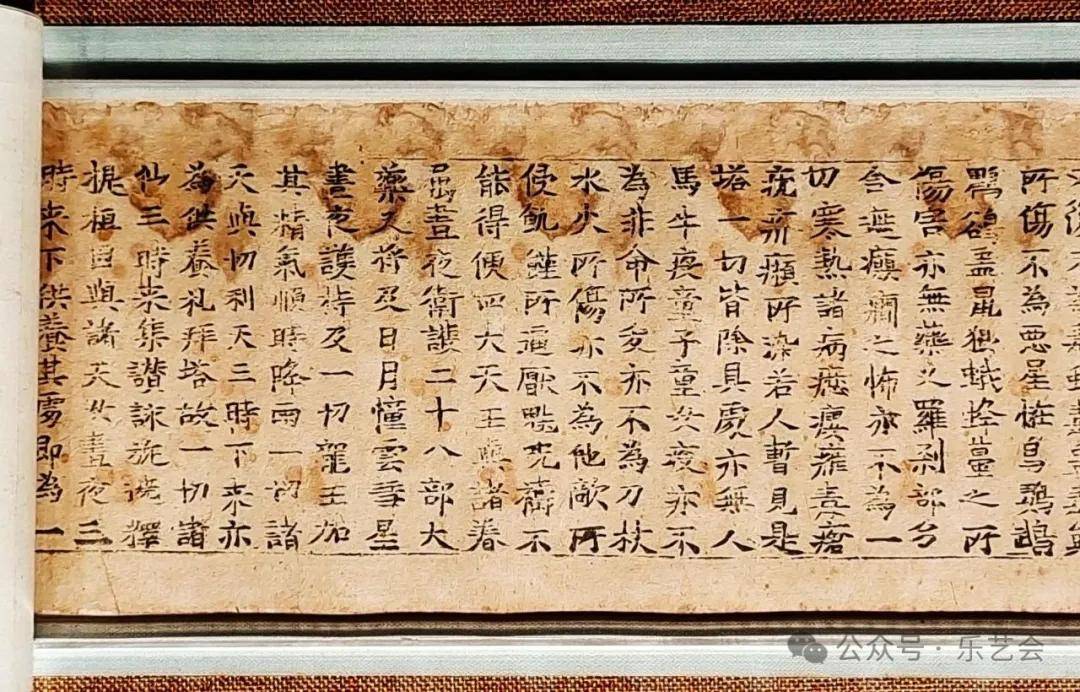 所傷不為惡星怪鳥鸚鵡
鸜鵒蟲鼠狼蛾蜂蠆之所
傷害亦無藥叉羅剎部多
舍遮癲癇之怖亦不為一
切寒熱諸病癧瘻癰毒瘡
疣疥癩所染若人暫見是
塔一切皆除其處亦無人
馬牛疫童子童女疫亦不
為非命所夭亦不為刀杖
水火所傷亦不為他敵所
侵飢饉所逼厭魅咒禱不
能得便四大天王與諸眷
屬晝夜衛護二十八部大
藥叉將及日月幢雲彗星
晝夜護持及一切龍王加
其精氣順時降雨一切諸
天與忉利天三時下來亦
為供養礼拜塔故一切諸
仙三時來集讚詠旋遶釋
提桓因與諸天女晝夜三
時來下供養其處即為一
公众号·乐艺会